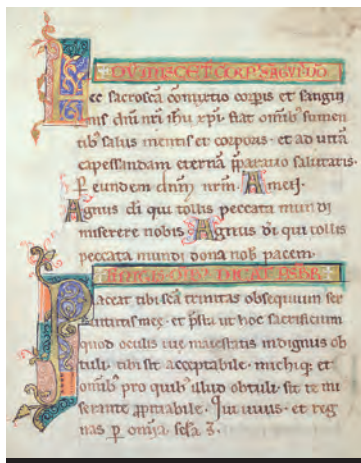 DUM MISCET CORP' SAGVI DO
Hec sacroscā com̄ixtio corpis et sangui
nis dn̄i nr̄i ihu xpi fiat omīb' sumen
tib' salus mentis et corporis · et ad uitā
capessandam eternā p̄paratio salutaris ·
P̲ eundem dn̄m nrm̄ . Amen .
Agnus di qui tollis peccata mundi
miserere nobis . Agnus di qui tollis
peccata mundi dona nob' pacem ·
Placeat tibi scā trinitas obsequium ser
uitutis meę · et p̄sta ut hoc sacrificium
quod oculis tuę maiestatis indignus ob
tuli · tibi sit acceptabile · michiq; et
omīb' pro quib' illud obtuli · sit te mi
serante ꝓpitiabile · Qui uiuis · et reg
nas p̲ omīa